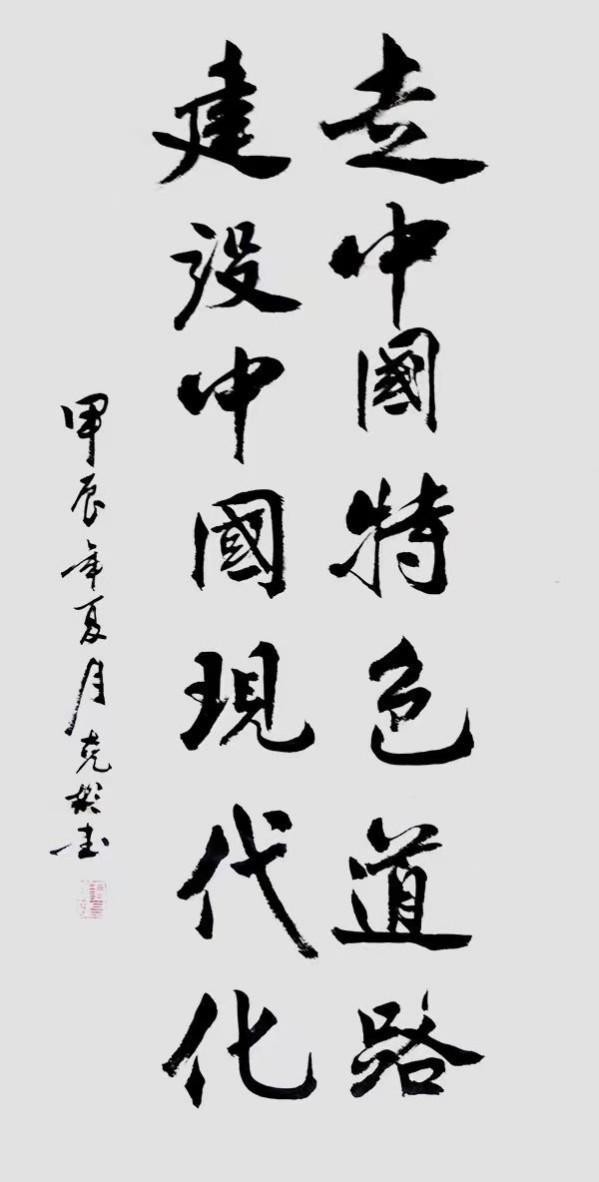 走中國特色道路
建設中國現代化
甲辰年夏月克彬書